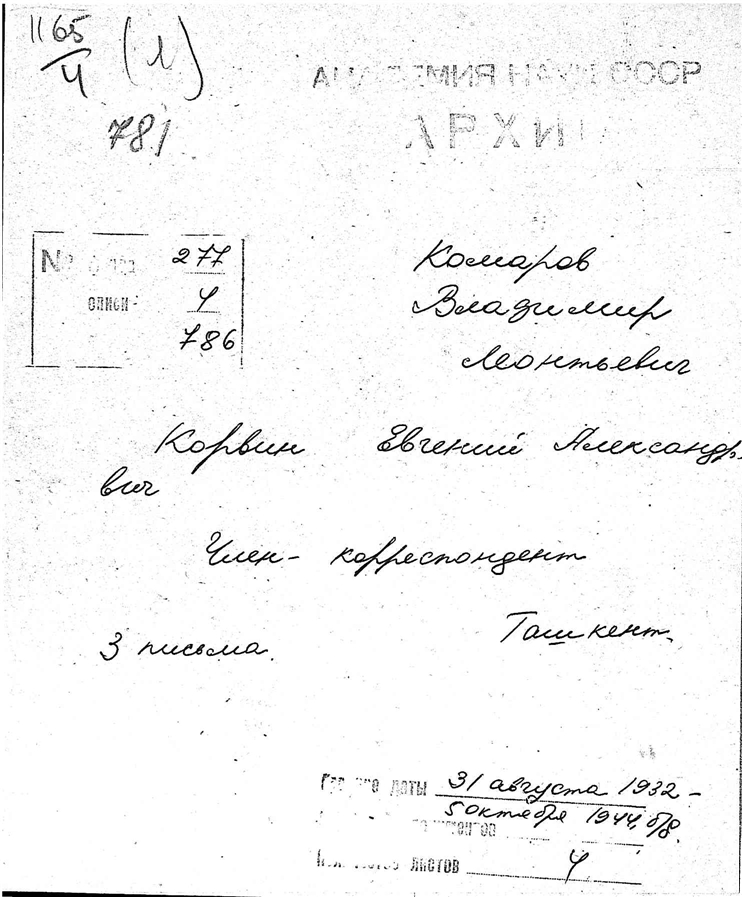 1165
4
(1)
781
АКАДЕМИЯ НАУК СССР
АРХИ
№ 277
описи- 4
786
Комаров
Владимир
Леонтьевич
Корвин Евгений Александр.
вич
Член- корреспондент
Ташкент.
3 письма.
даты 31 августа 1932 -
5 октября 1944, б/д.
листов 4